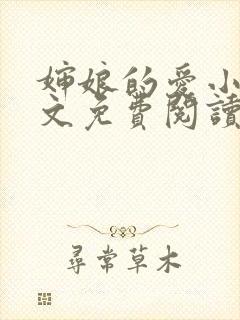 婶娘的爱小
文免费阅讀
尋常草木